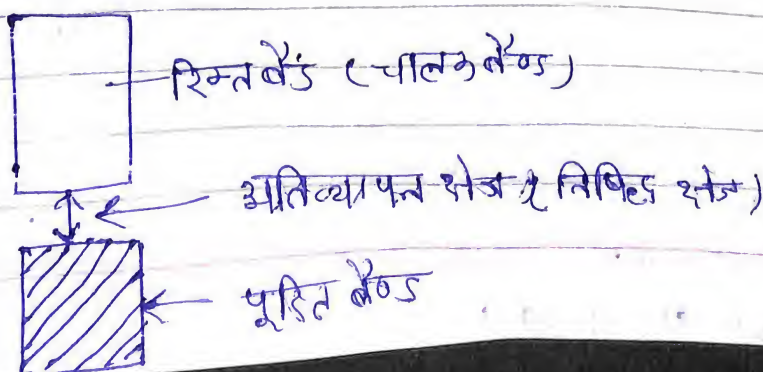 रिक्त बैंड (चालक बैण्ड)
अतिव्यापन क्षेत्र (निषिद्ध क्षेत्र)
पूरित बैण्ड